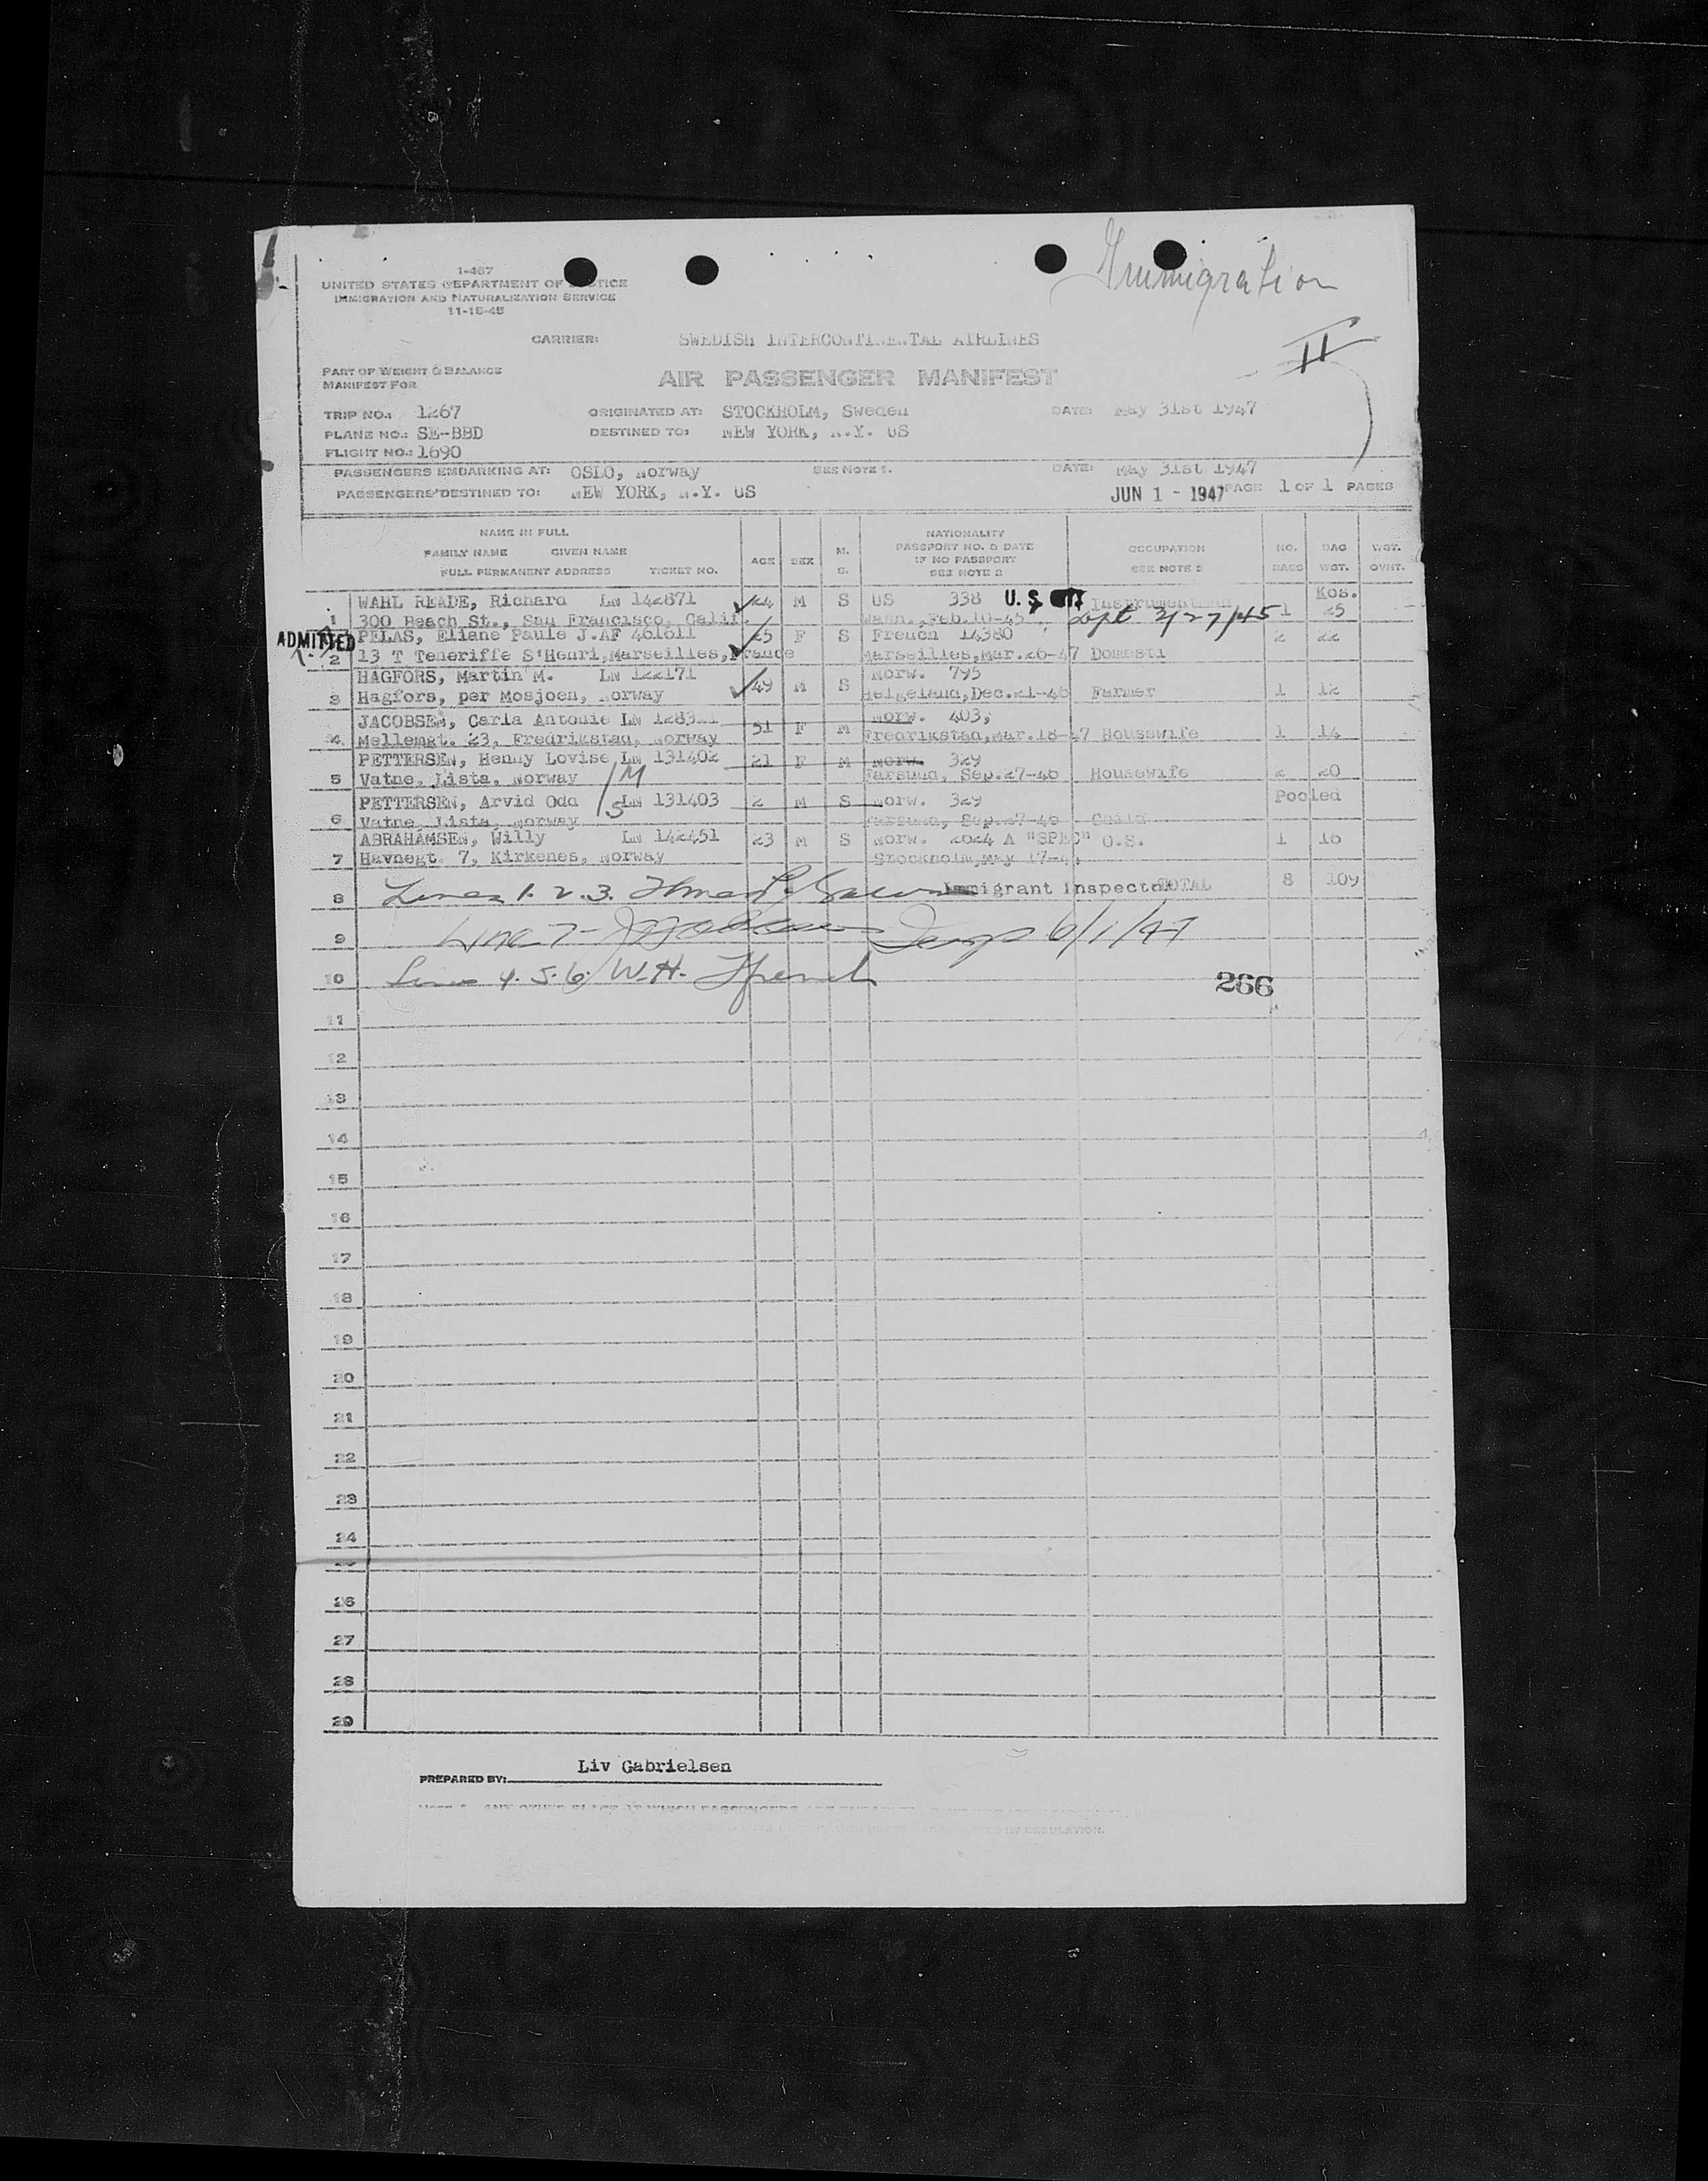 Immigration
1-467
UNITED STATES DEPARTMENT OF JUSTICE
IMMIGRATION AND NATURALIZATION SERVICE
11-15-45
II
CARRIER: SWEDISH INTERCONTINENTAL AIRLINES
PART OF WEIGHT & BALANCE
MANIFEST FOR
AIR PASSENGER MANIFEST
TRIP NO.: 1267 ORIGINATED AT: STOCKHOLM, Sweden DATE: May 31st 1947
PLANE NO.: SE-BBD DESTINED TO: NEW YORK, N.Y. US
FLIGHT NO.: 1690
PASSENGERS EMBARKING AT: OSLO, Norway SEE NOTE 1. DATE: May 31st 1947
PASSENGERS DESTINED TO: NEW YORK, N.Y. US JUN 1 - 1947 PAGE 1 OF 1 PAGES
NAME IN FULL
FAMILY NAME GIVEN NAME
FULL PERMANENT ADDRESS TICKET NO.
AGE SEX M. S.
NATIONALITY
PASSPORT NO. & DATE
IF NO PASSPORT
SEE NOTE 2
OCCUPATION
SEE NOTE 3
NO. BAGS BAG WGT. WGT. OVHT.
Kos.
WAHL READE, Richard LN 142871 24 M S US 338 U.S. Instrumentman
1 300 Beach St., San Francisco, Calif. Wash., Feb.10-45 Dept 2/27/45 1 25
ADMITTED
PELAS, Eliane Paule J. AF 461611 25 F S French 14380 2 22
2 13 T Teneriffe S'Henri, Marseilles, France Marseilles, Mar.26-47 Domesti
HAGFORS, Martin M. LN 122171 49 M S Norw. 795
3 Hagfors, per Mosjoen, Norway Helgeland, Dec.21-46 Farmer 1 12
JACOBSEN, Carla Antonie LN 51 F M Norw. 403,
4 Mellemgt. 23, Fredrikstad, Norway Fredrikstad, Mar.18-47 Housewife 1 14
PETTERSEN, Henny Lovise LN 131402 21 F M Norw. 329
5 Vatne, Lista, Norway Farsund, Sep.27-46 Housewife 2 20
M
PETTERSEN, Arvid Odd LN 131403 2 M S Norw. 329 Pooled
S
6 Vatne, Lista, Norway Farsund, Sep.27-46 Child
ABRAHAMSEN, Willy LN 142451 23 M S Norw. 2024 A "SPEC" O.S. 1 16
7 Havnegt. 7, Kirkenes, Norway Stockholm, May 17-4
8 Lines 1. 2. 3. Immigrant Inspector TOTAL 8 109
9 Line 7- Insp 6/1/47
10 Lines 4. 5. 6. W.H. French 266
11
12
13
14
15
16
17
18
19
20
21
22
23
24
26
27
28
29
PREPARED BY: Liv Gabrielsen